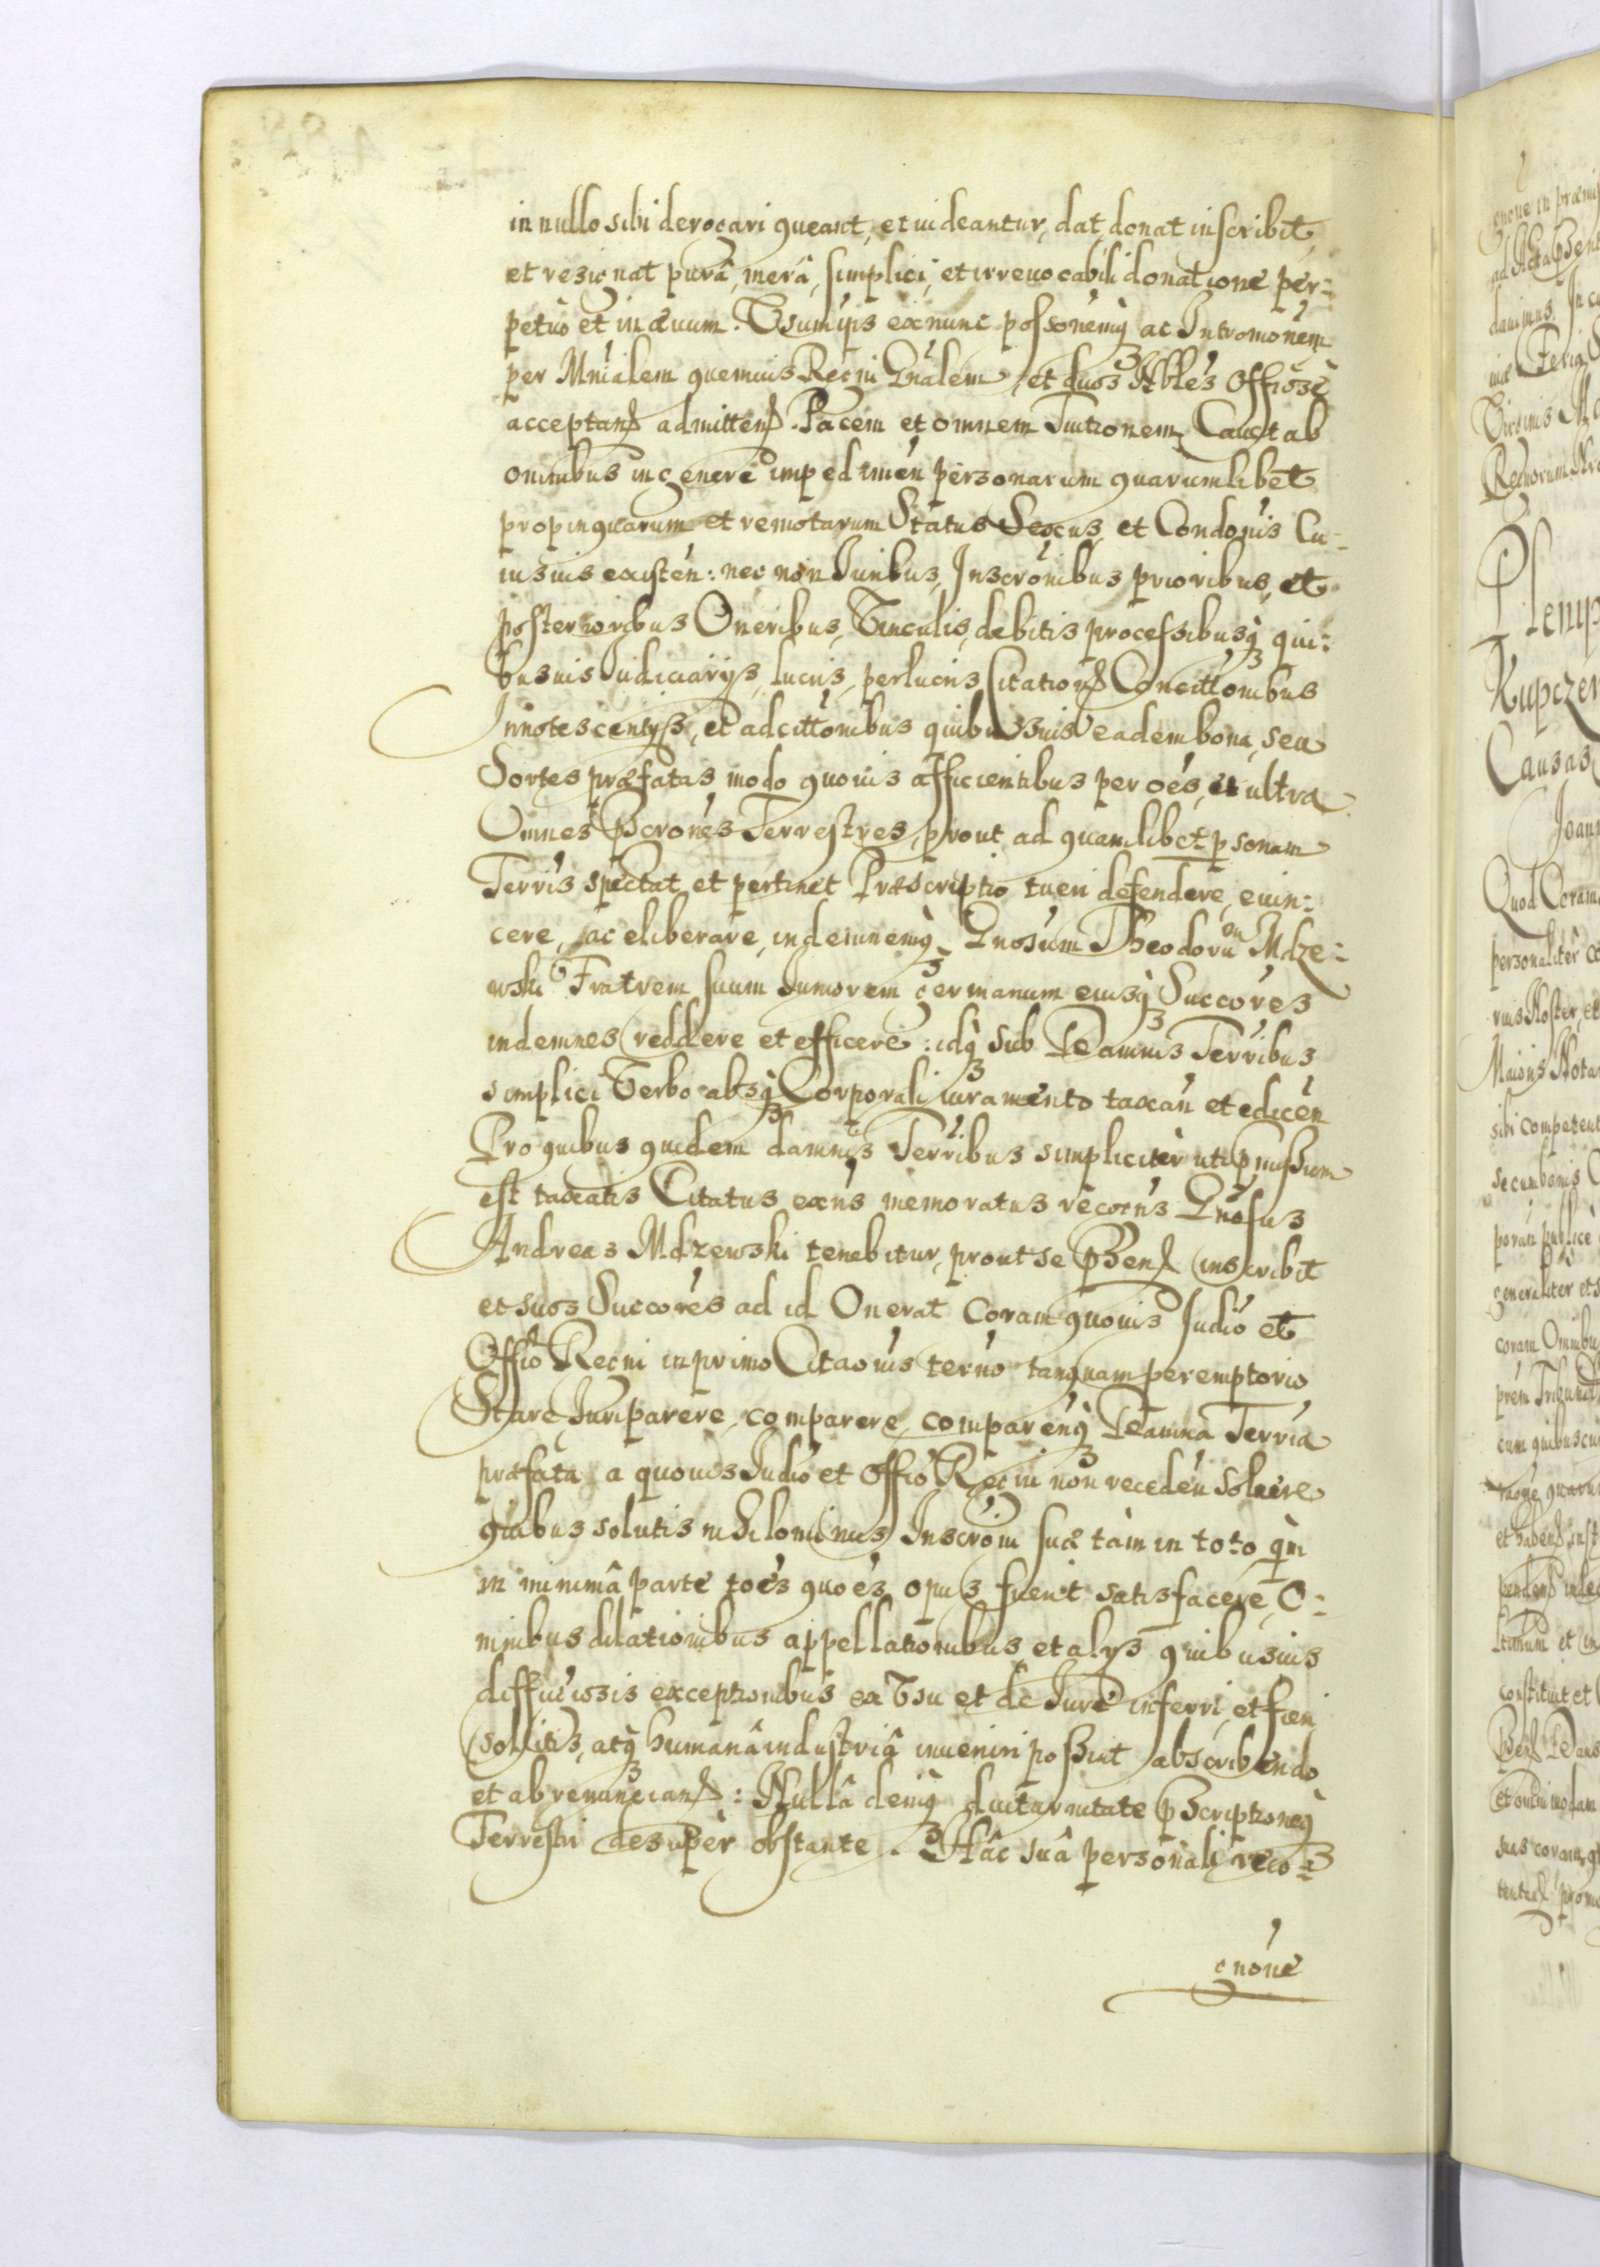 in nullo sibi derogari queant, et uideantur, dat, donat inscribit,
et resignat purâ, merâ, simplici, et irreuocabili donatione per=
petùo et in æuum. Vsum ipis exnunc possonemq3 ac Intromonem
per Mnialem quemuis Regni Gnalem et duos Nbles Offiose
acceptand admittend. Pacem et omnem Tuitionem Cauet ab
omnibus in genere impedimen personarum quarumlibet
propinquarum et remotarum Status Sexus, et Condonis Cu=
iusuis existen: nec non Iuribus, Inscronibus prioribus, et
posterioribus Oneribus, Vinculis, debitis processibusq3 qui=
busuis Iudiciarijs, lucris, perlucris Citationd Concittonibus
Innotescentijs, et adcittonibus quibusuis eadem bona, seu
Sortes præfatas, modo quouis afficientibus per oes, et ultra
Omnes Pscrones Terrestres, prout ad quamlibet psonam
Terris spectat et pertinet Præscriptio tueri defendere, euin=
cere, ac eliberare, indemnemq3 Gnosum Theodorũ Mdze=
wski Fratrem suum Iuniorem germanum eiusq3 Succores
indemnes reddere et efficere: idq3 sub Damnis Terribus
simplici Verbo absq3 Corporali iuramento taxan et edicen
Pro quibus quidem damnis Terribus simplicitèr uti pmissum
est taxatis Citatus exns memoratus recocns Gnosus
Andreas Mdzewski tenebitur, prout se psend inscribit
et suos Succores ad id Onerat Coram quouis Iudio et
Offio Regni in primo Citaonis terno tanquam peremptorio
Stare, Iuri parere, comparere, comparenq3 Damna Terria
præfata a quouis Iudio et Offio Regni non receden soluere
quibus solutis nihilominus Inscroni suæ tàm in toto qm
in minimâ parte toes quoes opus fuerit satisfacere, O=
mnibus dilationibus appellationibus, et alys quibusuis
diffugiosis exceptionibus ex Vsu et de Iure inferri, et fieri
solitis, atq3 humanâ industriâ inueniri possint abscribendo
et abrenunciand: Nullâ deniq3 diuturnitate pscriptioneq3
Terrestri desupèr obstante. Hâc suâ personali reco=
gnone